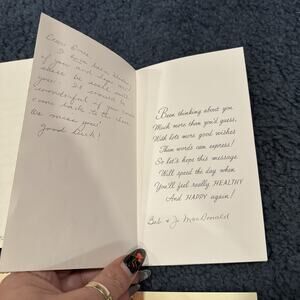 Dear
I have been thinking
of you and hope all
these be well with
you. It would be
wonderful if you would
come back to the
we miss you!
Good luck!
Been thinking about you
Much more than you'd guess,
With lots more good wishes
Than words can express!
So let's hope this message
Will speed the day when
You'll feel really HEALTHY
And HAPPY again!
Bob & Jo MacDonald